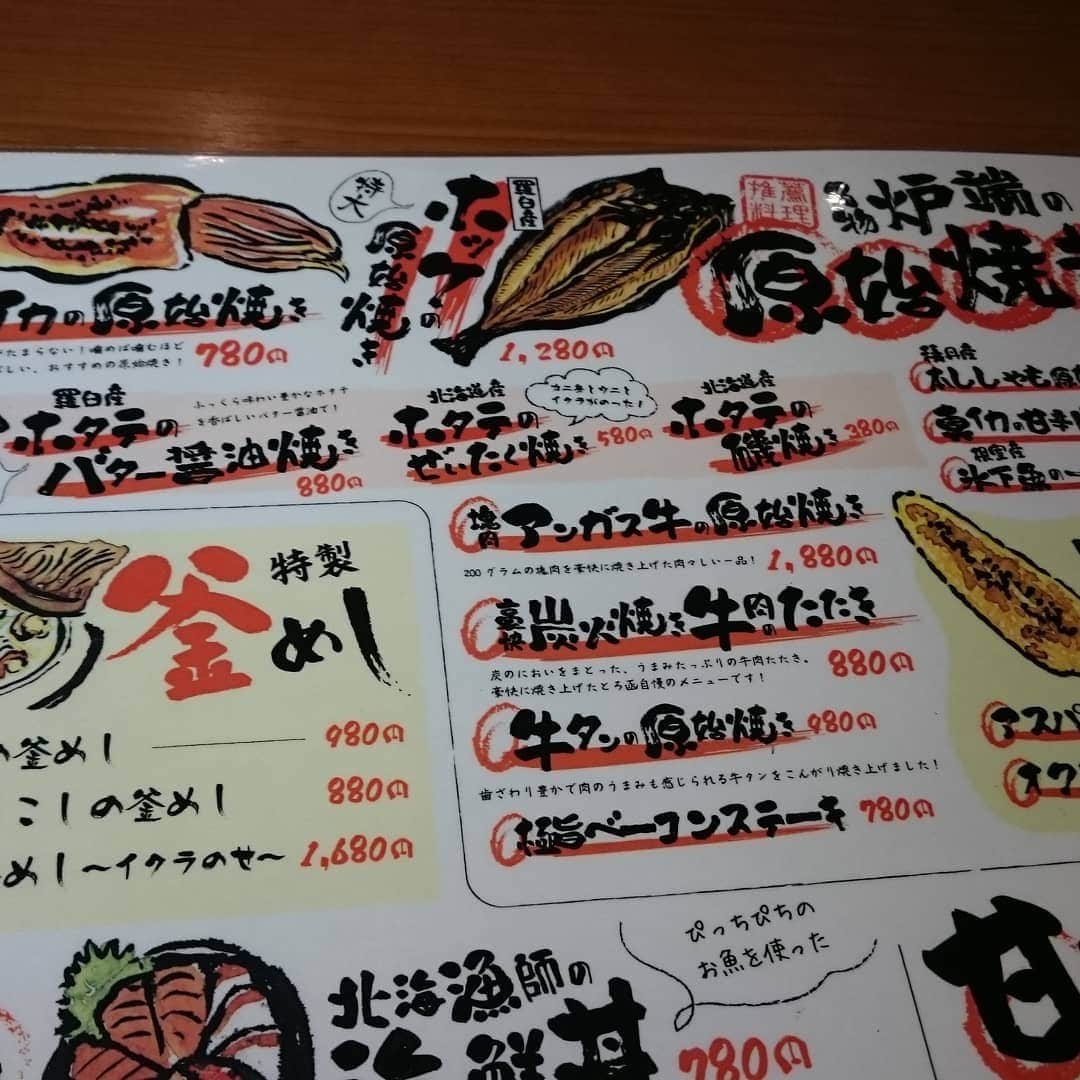 特大
羅臼産
ホッケの
原始焼き
1,280円
推薦料理
名物 炉端の
原始焼き
イカの原始焼き
たまらない！噛めば噛むほど
しい、おすすめの原始焼き！
780円
羅臼産
ホタテの
バター醤油焼き
ふっくら味わい豊かなホタテ
を香ばしいバター醤油で！
880円
北海道産
ホタテの
ぜいたく焼き
580円
カニ身とウニと
イクラがのった！
北海道産
ホタテの
磯焼き
380円
積丹産
太ししゃも原始
真イカの甘辛
氷下魚の一
塊肉 アンガス牛の原始焼き
200グラムの塊肉を豪快に焼き上げた肉々しい一品！
1,880円
豪快 炭火焼き牛肉のたたき
炭のにおいをまとった、うまみたっぷりの牛肉たたき。
豪快に焼き上げたとろ函自慢のメニューです！
880円
牛タンの原始焼き 980円
歯ざわり豊かで肉のうまみも感じられる牛タンをこんがり焼き上げました！
極旨ベーコンステーキ 780円
アスパ
オク
特製
釜めし
の釜めし 980円
こしの釜めし 880円
めし〜イクラのせ〜 1,680円
北海漁師の
海鮮丼
780円
ぴっちぴちの
お魚を使った
甘